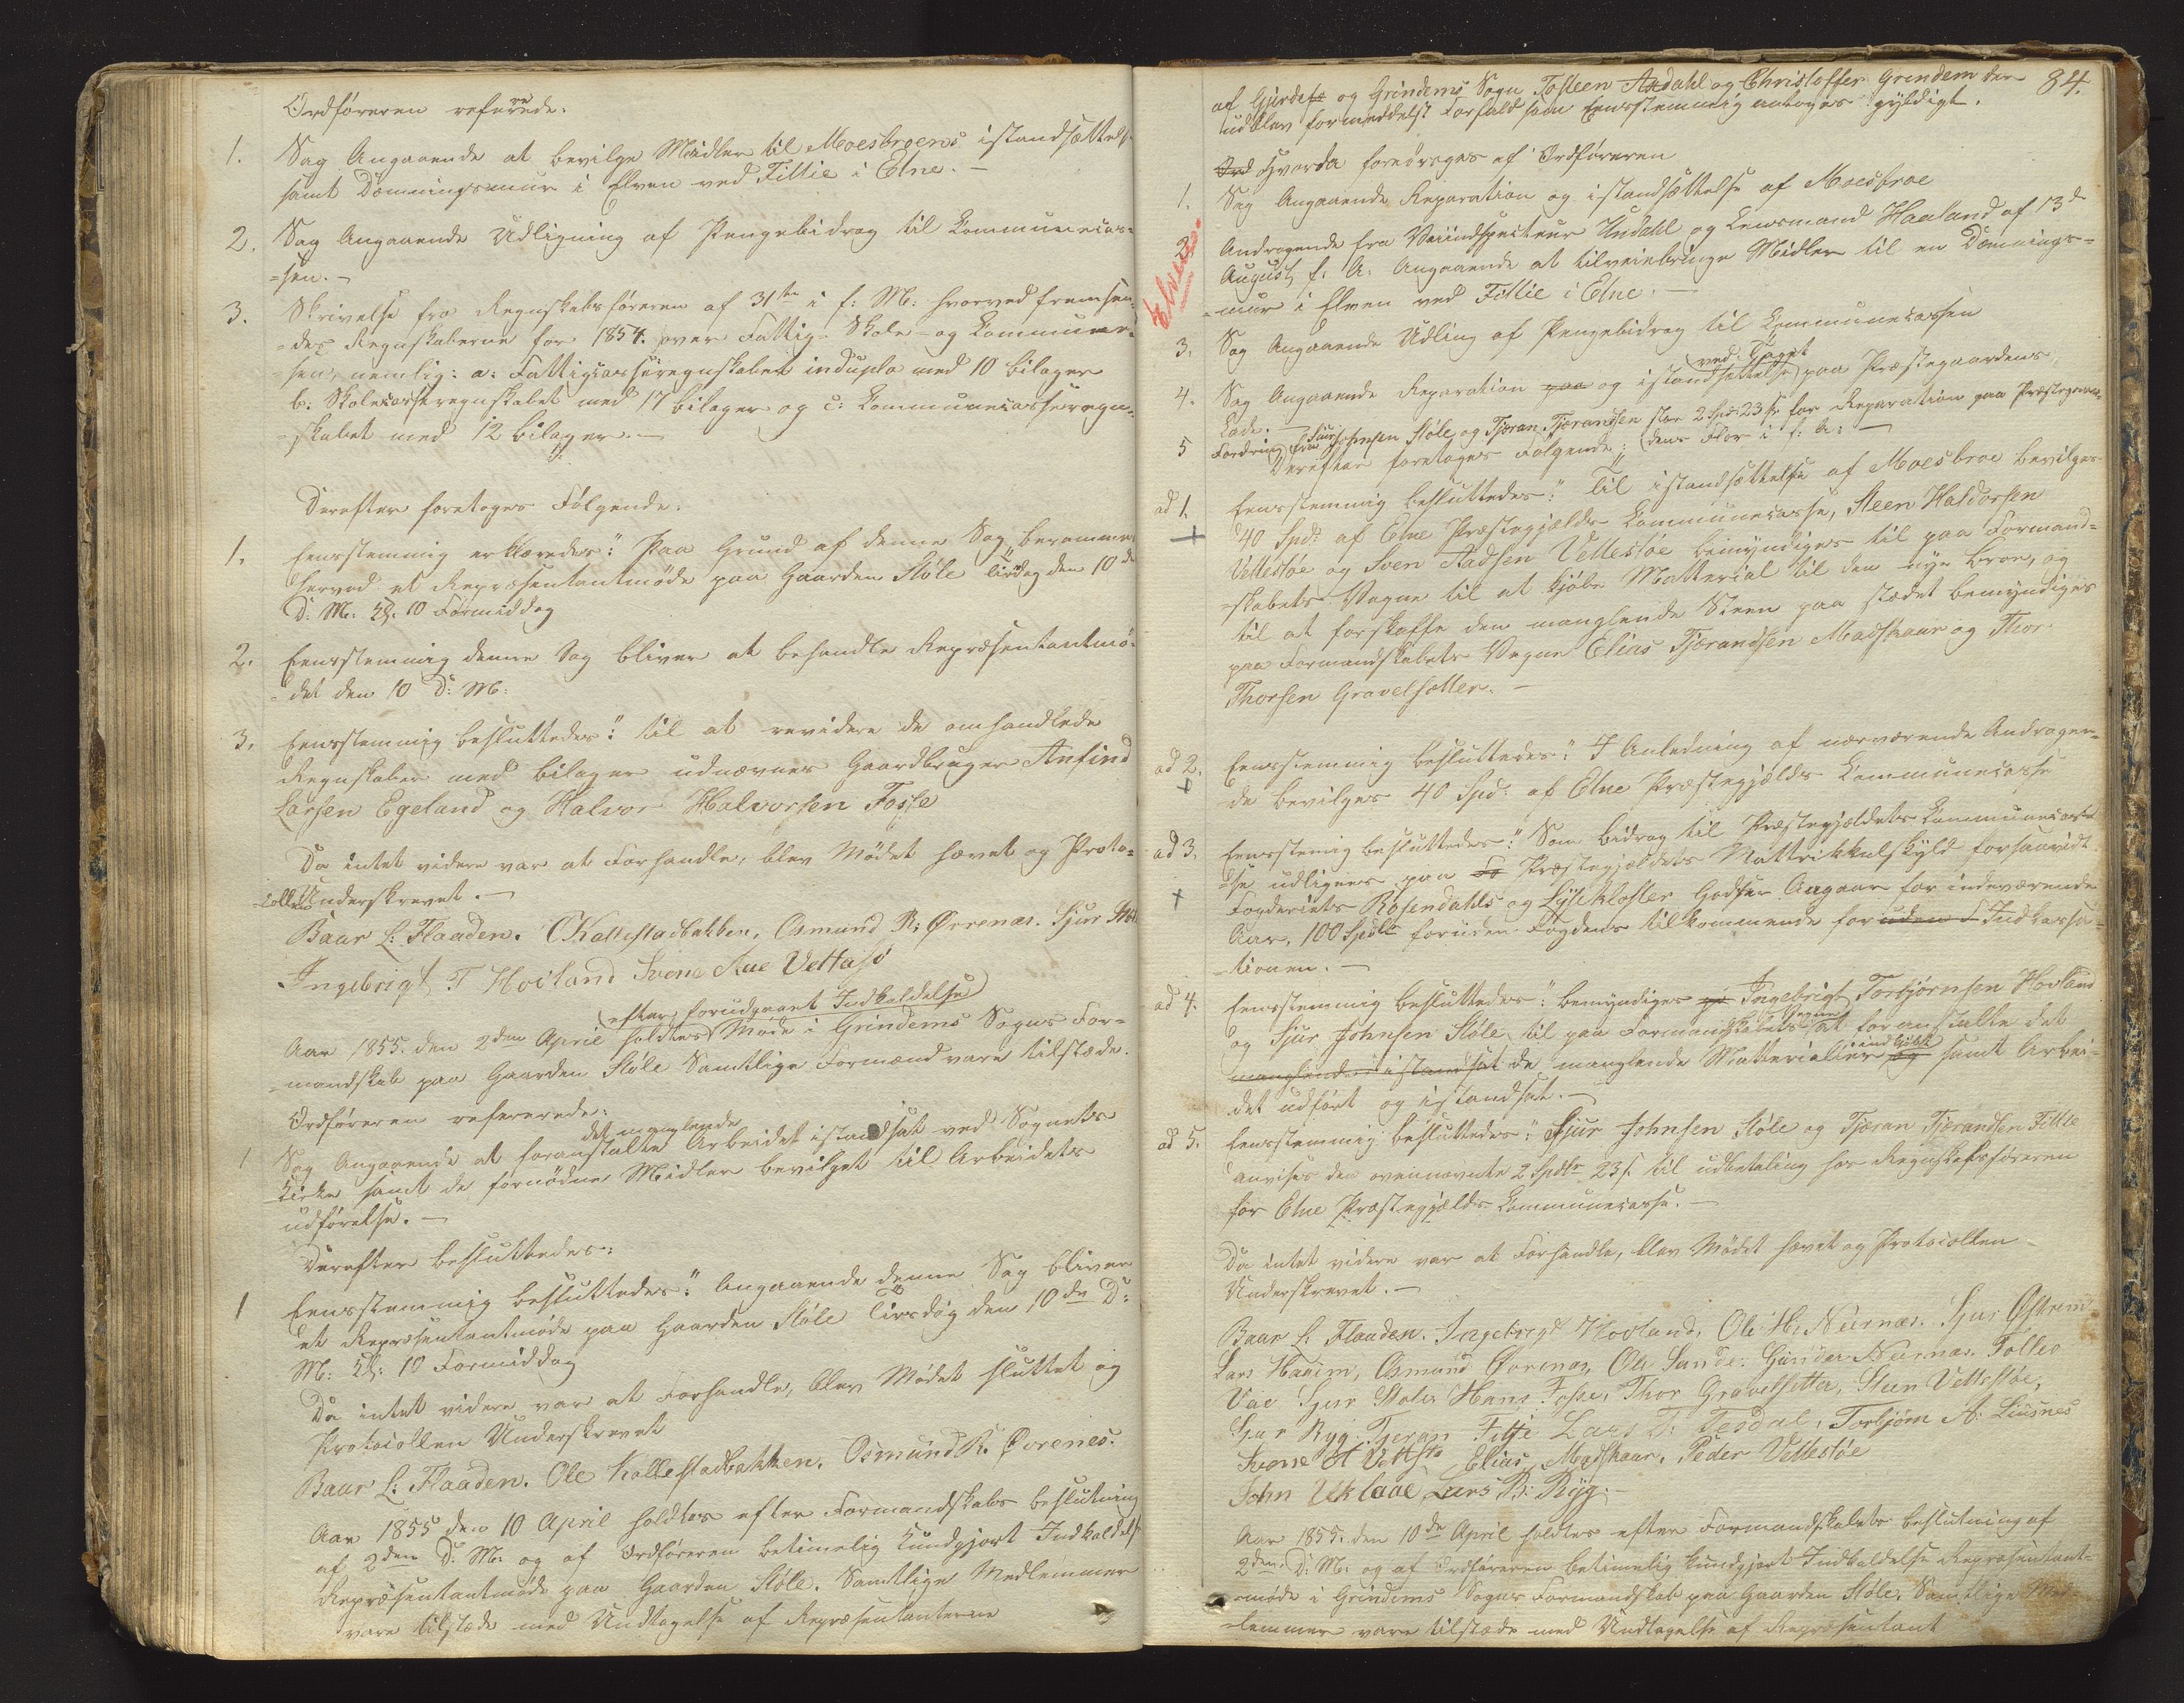 Ordføreren refererede.
1. Sag Angaaende at bevilge Midler til Moesbroens istandsættelse
samt Dæmningsmur i Elven ved Fittie i Etne. –
2. Sag Angaaende Udligning af Pengebidrag til Communecas=
=sen. –
3. Skrivelse fra Regnskabsføreren af 31te i f: M: hvorved fremsen=
=des Regnskaberne for 1854 over Fattig- Skole- og Communecas=
=sen, nemlig: a: Fattigcasseregnskabet indupla med 10 bilager
b: Skolecasseregnskabet med 17 bilager og c: Communecasseregn=
=skabet med 12 bilager. –
Derefter foretoges Følgende:
1. Eensstemmig erklæredes: "Paa Grund af denne Sag berammes
herved et Repræsentantmøde paa Gaarden Støle Tirsdag den 10de
D: M: Kl. 10 Formiddag
2. Eensstemmig denne Sag bliver at behandle Repræsentantmø=
=det den 10 D: M:
3. Eensstemmig besluttedes: "til at revidere de omhandlede
Regnskaber med bilager udnævnes Gaardbruger Anfind
Larsen Egeland og Halvor Halvorsen Fosse
Da intet videre var at Forhandle, blev Mødet hævet og Proto=
=collen Underskrevet. –
Baar L: Flaaden. O Kallestadbakken. Osmund R: Ørrenæs. Sjur Støle
Ingebrigt T Hovland Svene Aae Vettasø
efter forudgaaet Indkaldelse
Aar 1855. den 2den April holdtes Møde i Grindems Sogns For=
=mandskab paa Gaarden Støle Samtlige Formænd vare tilstæde.
Ordføreren refererede:
det manglende
1 Sag Angaaende at foranstalte Arbeidet istandsat ved Sognets
Kirke samt de fornødne Midler bevilget til Arbeidets
udførelse. –
Derefter besluttedes:
1 Eensstemmig besluttedes: "Angaaende denne Sag bliver
et Repræsentantmøde paa Gaarden Støle Tirsdag den 10de D:
M: Kl: 10 Formiddag
Da intet videre var at Forhandle, blev Mødet sluttet og
Protocollen Underskrevet
Baar L: Flaaden. Ole Kallestadbakken. Osmund R. Øvrenes.
Aar 1855 den 10 April holdtes efter Formandskabs beslutning
af 2den D: M: og af Ordføreren betimelig Kundgjort Indkaldelse
Repræsentantmøde paa Gaarden Støle. Samtlige Medlemmer
vare tilstæde med Undtagelse af Repræsentanterne
84.
af Gjerdes og Grindems Sogn Tosteen Axdahl og Christoffer Grindem der
udblev formeddelst Forfald som Eensstemmig antoges gyldigt.
Ord Hvorda foredroges af Ordføreren
1. Sag Angaaende Reparation og istandsættelse af Moesbroe
Elven.
2. Andragende fra Veiindspecteur Undahl og Lensmand Haaland af 13de
August f: A: Angaaende at tilveiebringe Midler til en Dæmnings=
=mur i Elven ved Fittie i Etne. –
3. Sag Angaaende Udling af Pengebidrag til Communecassen
ved Taget
4. Sag Angaaende Reparation paa og istandsættelse paa Præstegaardens
Lade. –
5 Fordring fra Sjur Johnsen Støle og Tjæran Tjærandsen stor 2 Spd 23 s for Reparation paa Præstegaar=
dens Flor i f: A: –
Derefter foretoges Følgende:
ad 1. Eensstemmig besluttedes: "Til istandsættelse af Moesbroe bevilges
+ 40 Spd: af Etne Præstegjælds Communecasse, Steen Haldorsen
Vettestøe og Sven Aadsen Vettestøe bemyndiges til paa Formand=
=skabets Vegne til at kjøbe Matterial til den nye broe, og
til at forskaffe den manglende Steen paa stædet bemyndiges
paa Formandskabets Vegne Elias Tjærandsen Madskaar og Thor
Thorsen Gravelsætter. –
ad 2. Eensstemmig besluttedes: "I Anledning af nærværende Andragen=
+ de bevilges 40 Spd: af Etne Præstegjælds Communecasse
ad 3. Eensstemmig besluttedes: "Som bidrag til Præstegjældets Communecas=
=se udlignes paa Præstegjældets Mattrikkulskyld forsaavidt
+ Fogderiets Rosendahls og Lysekloster Godser Angaar for indeværende
Aar, 100 Spdlr foruden Fogdens tilkommende for uden Indkassa=
=tionen. –
ad 4. Eensstemmig besluttedes: "bemyndiges Ingebrigt Torbjørnsen Hovland
og Sjur Johnsen Støle til paa Formandskabets Vegne at foranstalte det
manglende istandsat de manglende Matterialier indkjøbt og samt Arbei=
det udført og istandsat. –
ad 5. Eensstemmig besluttedes: "Sjur Johnsen Støle og Tjæran Tjerandsen Fittie
anvises den ovennævnte 2 Spdlr 23 s. til udbetaling hos Regnskabsføreren
for Etne Præstegjælds Communecasse. –
Da intet videre var at Forhandle, blev Mødet hævet og Protocollen
Underskrevet. –
Baar L: Flaaden. Ingebrigt Hovland, Ole H: Neernæs. Sjur Østrem
Lars Haaem, Osmund Øvrenæs, Ole Sunde. Gunder Nernæs. Tollev
Vae Sjur Støle, Hans Fosse, Thor Gravelsetter, Steen Vettestøe,
Sjur Ryg. Tjeran Fittje Lars T: Tesdal, Torbjørn A: Liusnes
Svene A Vettstø Elias Madskaar, Peder Vettestøe
John Ukleaae Lars B: Ryg. –
Aar 1855: den 10de April holdtes efter Formandskabets beslutning af
2den D: M: og af Ordføreren betimelig kundgjort Indkaldelse Repræsentant=
=møde i Grindems Sogns Formandskab paa Gaarden Støle. Samtlige Med=
=lemmer vare tilstæde med Undtagelse af Repræsentant